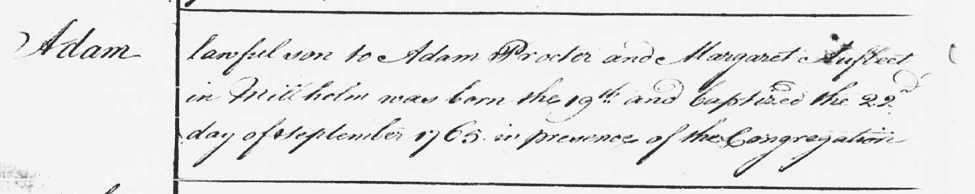 Adam
lawful son to Adam Procter and Margaret
in Millholm was born the 19th and baptized the 22d
day of September 1765 in presence of the Congregation